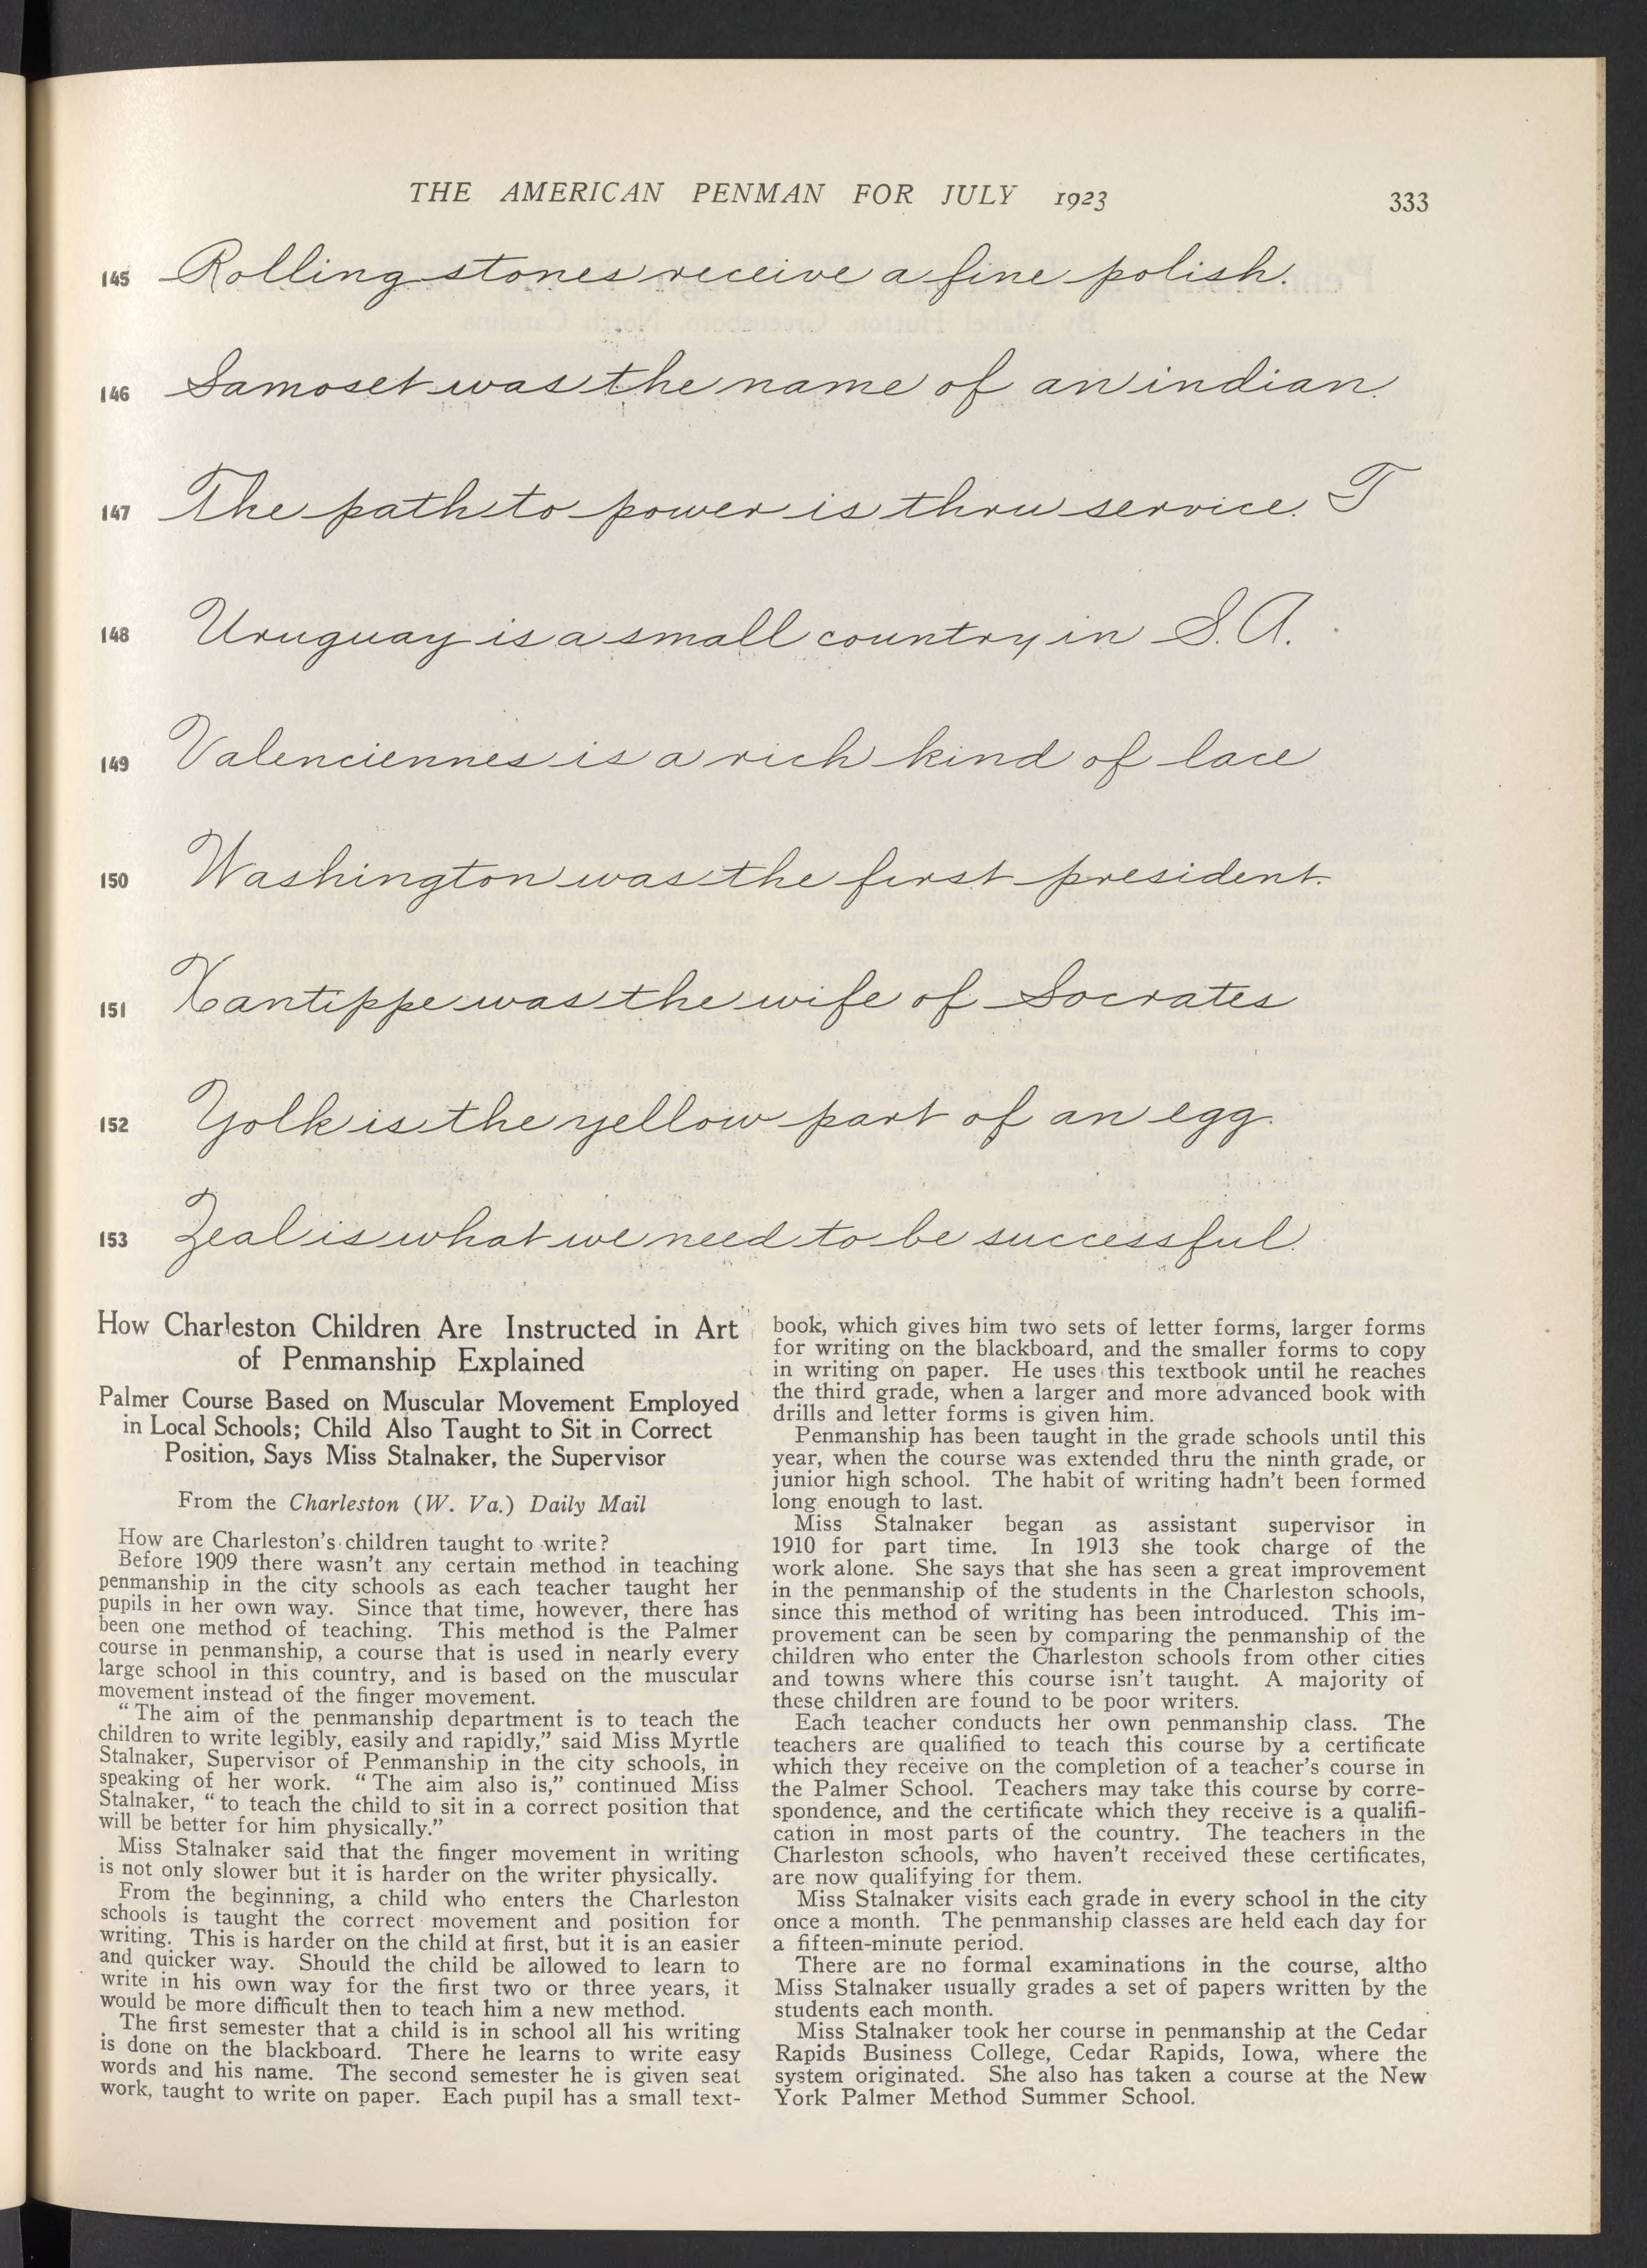 THE AMERICAN PENMAN FOR JULY 1923 333
145 Rolling stones receive a fine polish.
146 Samoset was the name of an indian.
147 The path to power is thru service. T
148 Uruguay is a small country in S. A.
149 Valenciennes is a rich kind of lace
150 Washington was the first president.
151 Xantippe was the wife of Socrates
152 Yolk is the yellow part of an egg.
153 Zeal is what we need to be successful.
How Charleston Children Are Instructed in Art
of Penmanship Explained
Palmer Course Based on Muscular Movement Employed
in Local Schools; Child Also Taught to Sit in Correct
Position, Says Miss Stalnaker, the Supervisor
From the Charleston (W. Va.) Daily Mail
How are Charleston's children taught to write?
Before 1909 there wasn't any certain method in teaching
penmanship in the city schools as each teacher taught her
pupils in her own way. Since that time, however, there has
been one method of teaching. This method is the Palmer
course in penmanship, a course that is used in nearly every
large school in this country, and is based on the muscular
movement instead of the finger movement.
"The aim of the penmanship department is to teach the
children to write legibly, easily and rapidly," said Miss Myrtle
Stalnaker, Supervisor of Penmanship in the city schools, in
speaking of her work. "The aim also is," continued Miss
Stalnaker, "to teach the child to sit in a correct position that
will be better for him physically."
Miss Stalnaker said that the finger movement in writing
is not only slower but it is harder on the writer physically.
From the beginning, a child who enters the Charleston
schools is taught the correct movement and position for
writing. This is harder on the child at first, but it is an easier
and quicker way. Should the child be allowed to learn to
write in his own way for the first two or three years, it
would be more difficult then to teach him a new method.
The first semester that a child is in school all his writing
is done on the blackboard. There he learns to write easy
words and his name. The second semester he is given seat
work, taught to write on paper. Each pupil has a small text-
book, which gives him two sets of letter forms, larger forms
for writing on the blackboard, and the smaller forms to copy
in writing on paper. He uses this textbook until he reaches
the third grade, when a larger and more advanced book with
drills and letter forms is given him.
Penmanship has been taught in the grade schools until this
year, when the course was extended thru the ninth grade, or
junior high school. The habit of writing hadn't been formed
long enough to last.
Miss Stalnaker began as assistant supervisor in
1910 for part time. In 1913 she took charge of the
work alone. She says that she has seen a great improvement
in the penmanship of the students in the Charleston schools,
since this method of writing has been introduced. This im-
provement can be seen by comparing the penmanship of the
children who enter the Charleston schools from other cities
and towns where this course isn't taught. A majority of
these children are found to be poor writers.
Each teacher conducts her own penmanship class. The
teachers are qualified to teach this course by a certificate
which they receive on the completion of a teacher's course in
the Palmer School. Teachers may take this course by corre-
spondence, and the certificate which they receive is a qualifi-
cation in most parts of the country. The teachers in the
Charleston schools, who haven't received these certificates,
are now qualifying for them.
Miss Stalnaker visits each grade in every school in the city
once a month. The penmanship classes are held each day for
a fifteen-minute period.
There are no formal examinations in the course, altho
Miss Stalnaker usually grades a set of papers written by the
students each month.
Miss Stalnaker took her course in penmanship at the Cedar
Rapids Business College, Cedar Rapids, Iowa, where the
system originated. She also has taken a course at the New
York Palmer Method Summer School.